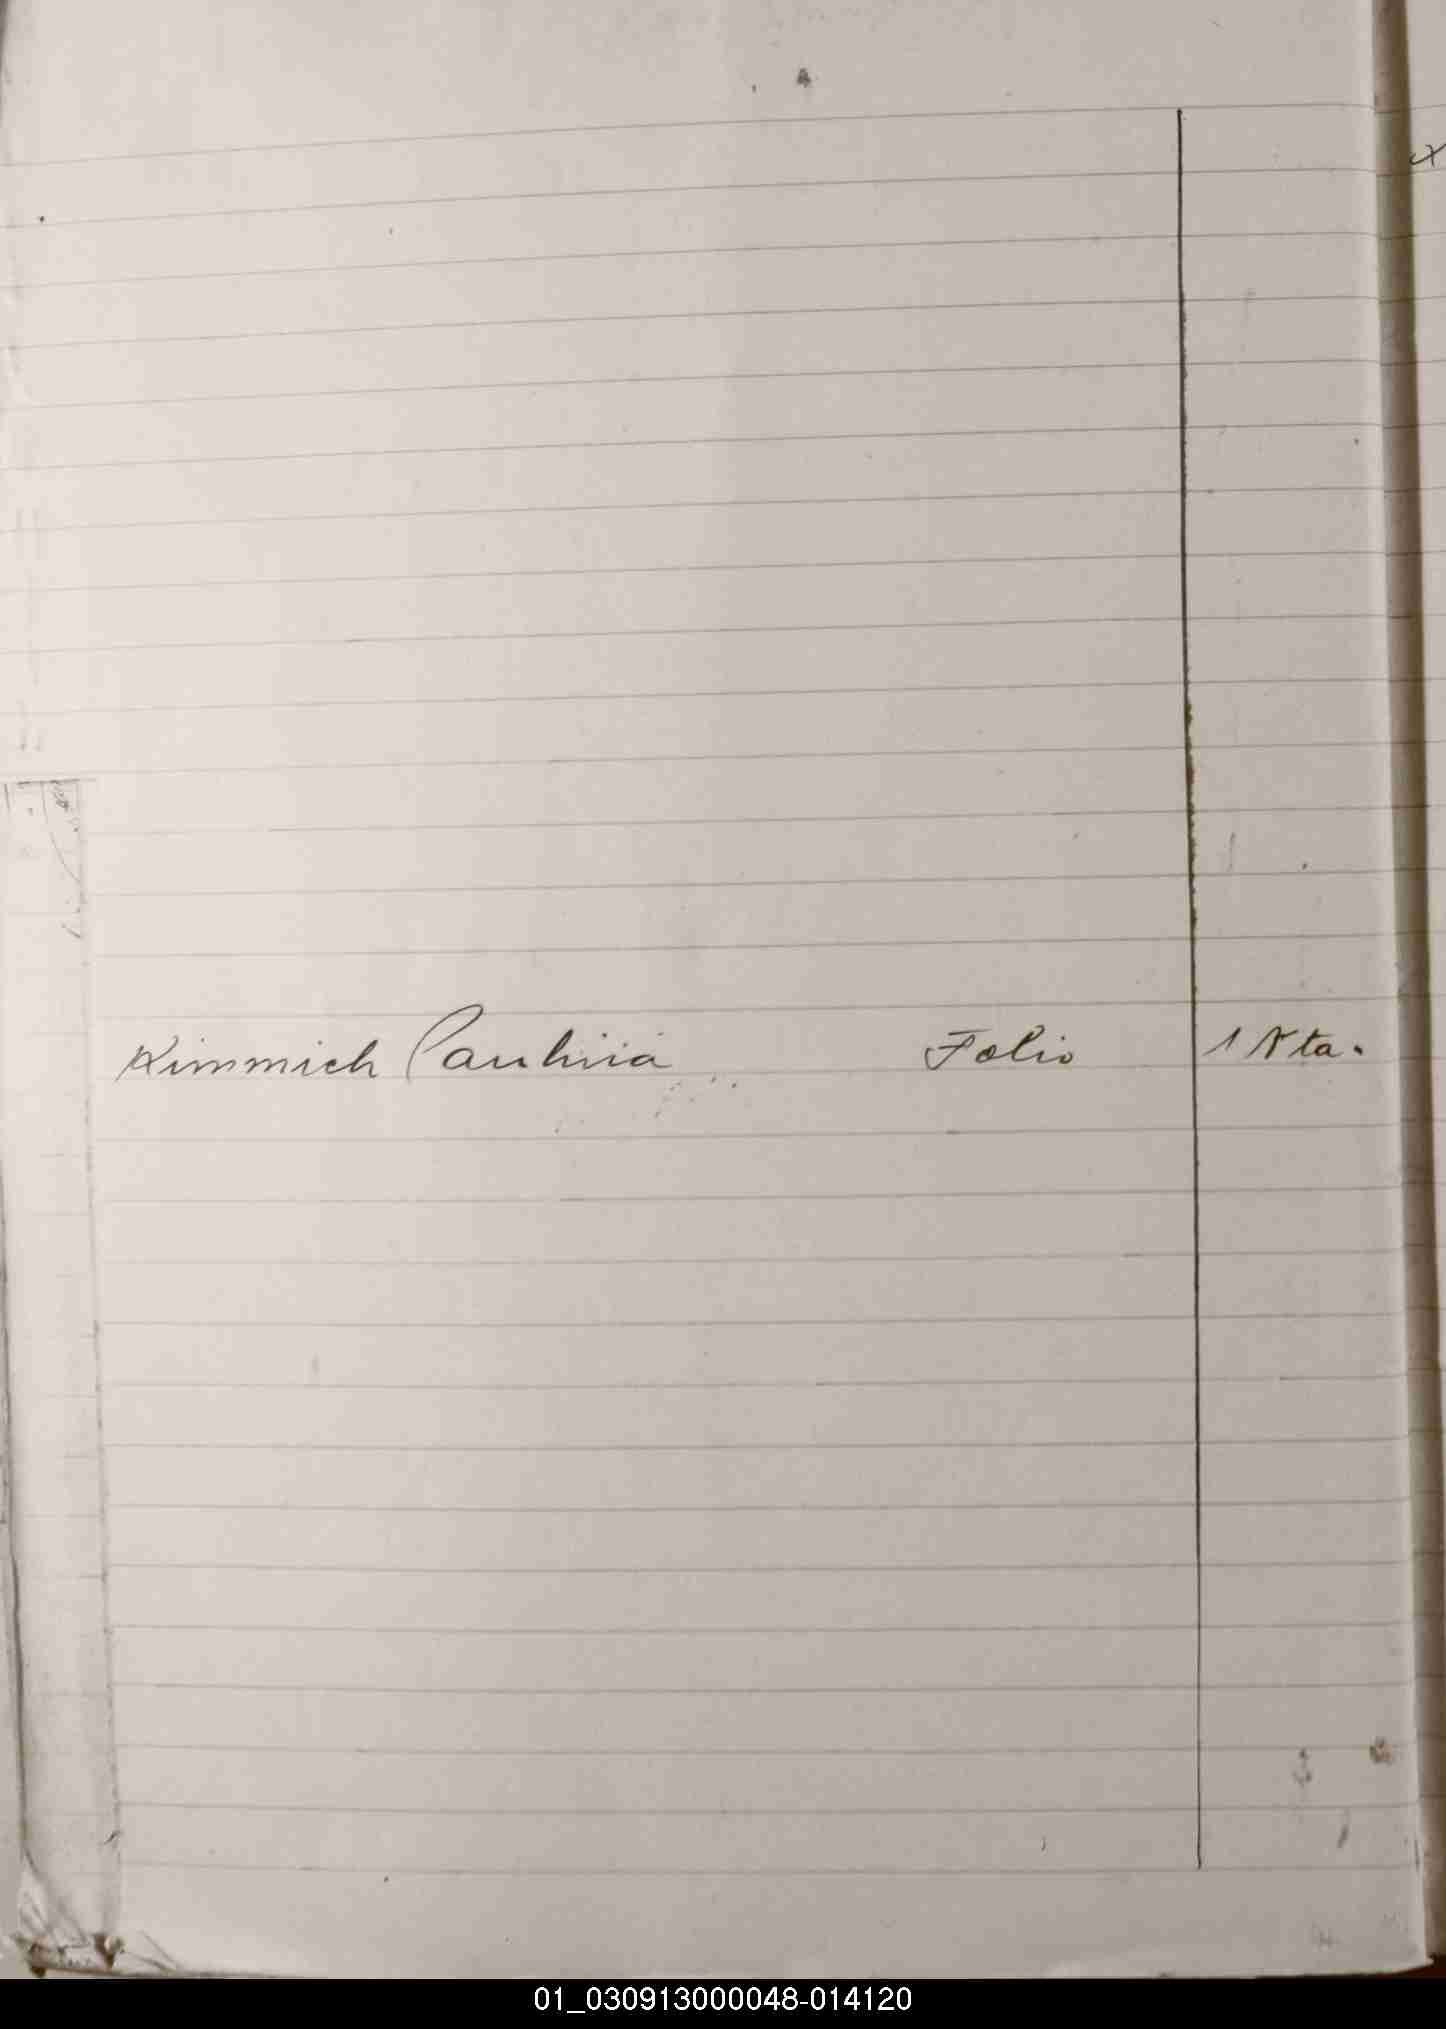 Kimmich Paulina Folio 1 Vta.
01_030913000048-014120